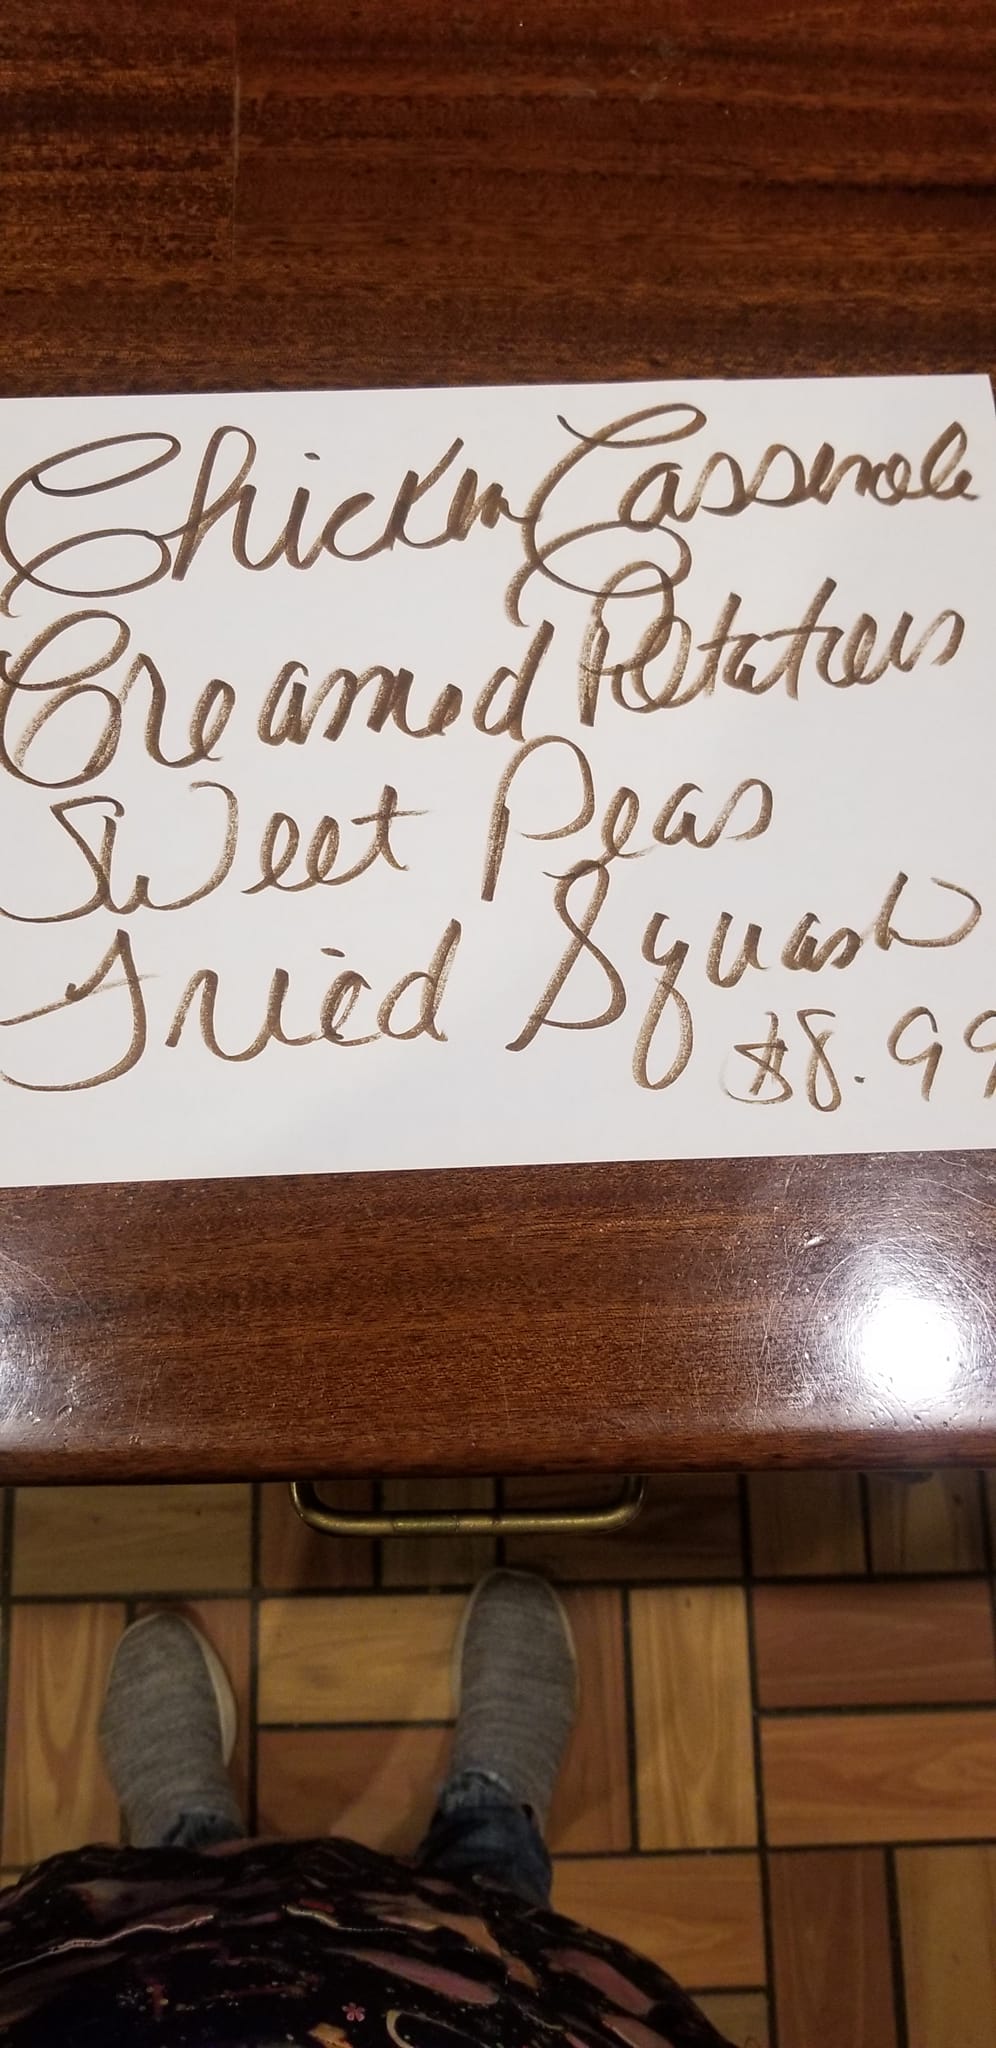 Chicken Casserole
Creamed Potatoes
Sweet Peas
Fried Squash
$8.99